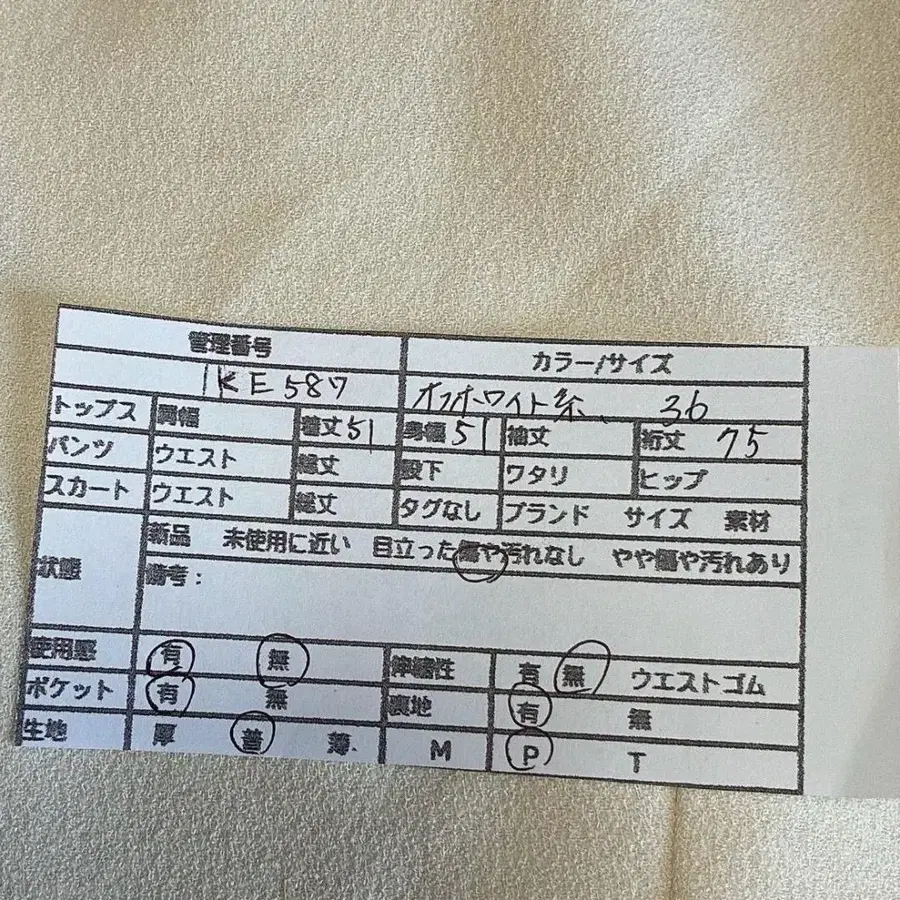 管理番号 カラー/サイズ
KE587 オフホワイト系、 36
トップス 肩幅 着丈 51 身幅 51 袖丈 裄丈 75
パンツ ウエスト 総丈 股下 ワタリ ヒップ
スカート ウエスト 総丈 タグなし ブランド サイズ 素材
状態 新品 未使用に近い 目立った傷や汚れなし やや傷や汚れあり
備考：
使用感 有 無 伸縮性 有 無 ウエストゴム
ポケット 有 無 裏地 有 無
生地 厚 普 薄 M P T